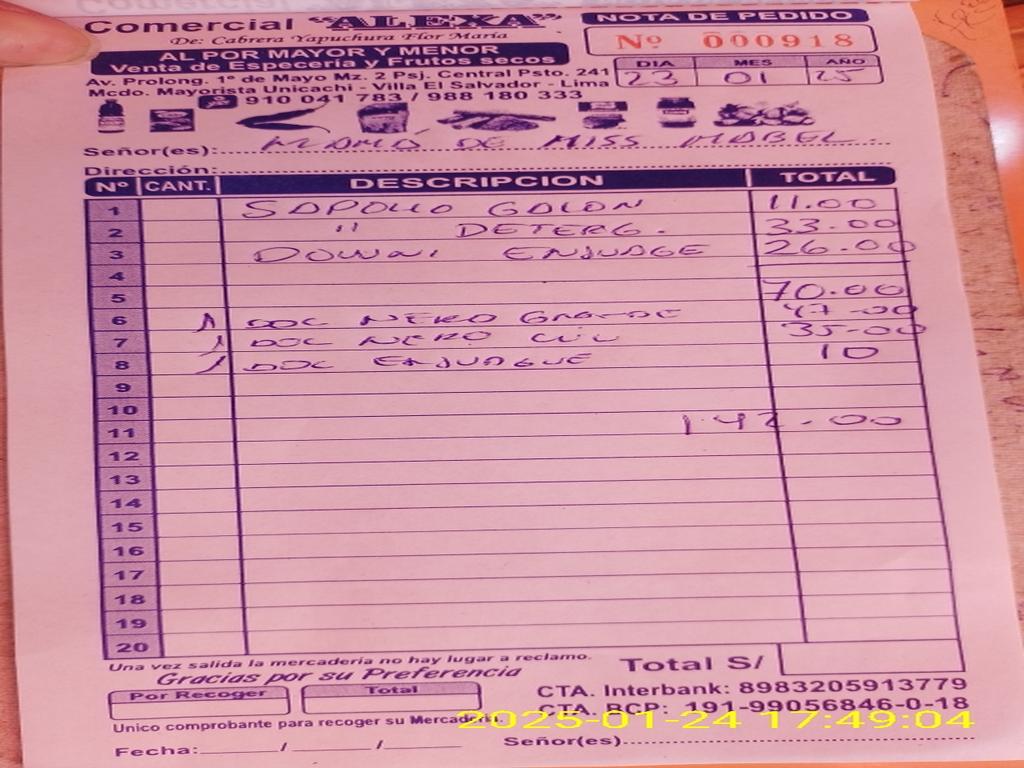 Comercial "ALEXA"
De: Cabrera Yapuchura Flor María
AL POR MAYOR Y MENOR
Venta de Especería y Frutos secos
Av. Prolong. 1° de Mayo Mz. 2 Psj. Central Psto. 241
Mcdo. Mayorista Unicachi - Villa El Salvador - Lima
910 041 783 / 988 180 333
NOTA DE PEDIDO
Nº 000918
DIA MES AÑO
23 01 25
Señor(es): MAMÁ DE MISS MABEL.
Dirección:
Nº CANT. DESCRIPCION TOTAL
1 SAPOLIO GALON 11.00
2 " DETERG. 33.00
3 DOWNI ENJUAGE 26.00
4
5 70.00
6 1 DOC NEKO GRANDE 47.00
7 1 DOC NEKO 35.00
8 1 DOC ENJUAGUE 10
9
10
11 142.00
12
13
14
15
16
17
18
19
20
Una vez salida la mercadería no hay lugar a reclamo.
Gracias por su Preferencia
Total S/
Por Recoger Total
CTA. Interbank: 8983205913779
CTA. BCP: 191-99056846-0-18
Unico comprobante para recoger su Mercadería.
2025-01-24 17:49:04
Fecha: / /
Señor(es)